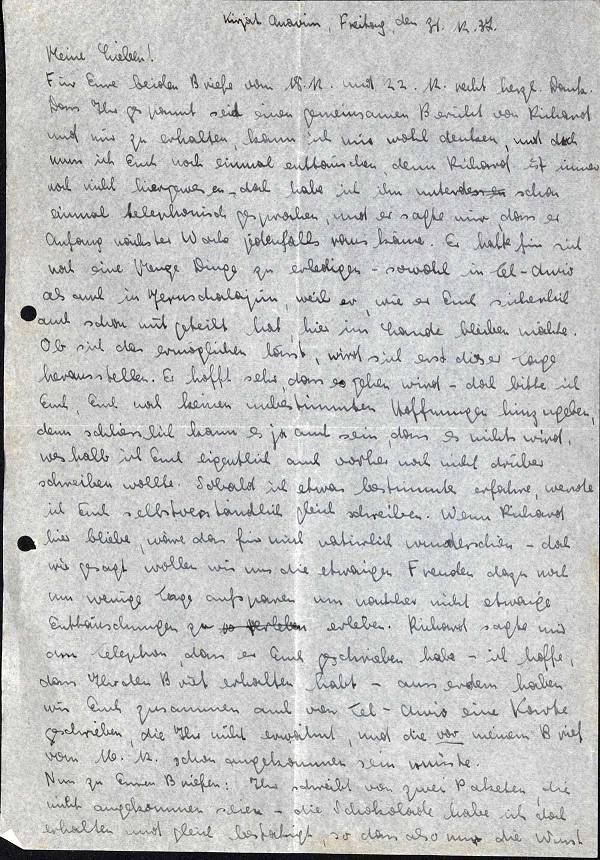 Kirjath Anavim, Freitag, den 31.12.37.
Meine Lieben!
Für Eure beiden Briefe vom 18.12. und 22.12. recht herzl. Dank.
Dass Ihr gespannt seid einen gemeinsamen Bericht von Richard
und mir zu erhalten, kann ich mir wohl denken, und doch
muss ich Euch noch einmal enttäuschen, denn Richard ist immer
noch nicht hiergewesen, doch habe ich ihn unterdessen schon
einmal telephonisch gesprochen, und er sagte mir, dass er
Anfang nächster Woche jedenfalls rauskäme. Er hatte für sich
noch eine Menge Dinge zu erledigen - sowohl in Tel-Awiw
als auch in Jeruschalajim, weil er, wie er Euch sicherlich
auch schon mitgeteilt hat, hier im Lande bleiben möchte.
Ob sich das ermöglichen lässt, wird sich erst dieser Tage
herausstellen. Er hofft sehr, dass es gehen wird - doch bitte ich
Euch, Euch noch keinen unbestimmten Hoffnungen hinzugeben,
denn schliesslich kann es ja auch sein, dass es nichts wird,
weshalb ich Euch eigentlich auch vorher noch nicht drüber
schreiben wollte. Sobald ich etwas bestimmtes erfahre, werde
ich Euch selbstverständlich gleich schreiben. Wenn Richard
hier bliebe, wäre das für mich natürlich wunderschön - doch
wie gesagt wollen wir uns die etwaigen Freuden dazu noch
um wenige Tage aufsparen um nachher nicht etwaige
Enttäuschungen zu erleben. Richard sagte mir
am Telephon, dass er Euch geschrieben habe - ich hoffe,
dass Ihr den Brief erhalten habt - ausserdem haben
wir Euch zusammen auch von Tel-Awiw eine Karte
geschrieben, die Ihr nicht erwähnt, und die vor meinem Brief
vom 16.12. schon angekommen sein müsste.
Nun zu Euren Briefen: Ihr schreibt von zwei Paketen, die
nicht angekommen seien - die Schokolade habe ich doch
erhalten und gleich bestätigt, so dass also nur die Wurst